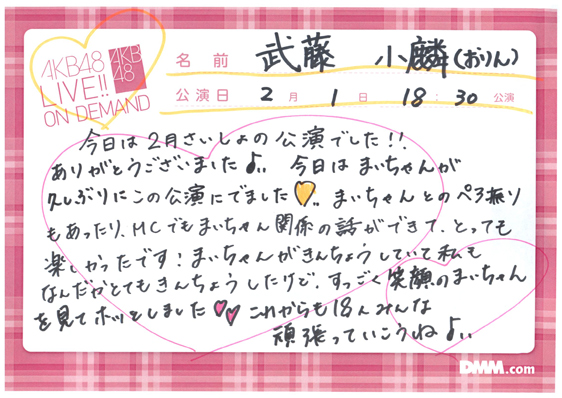 AKB48
LIVE!!
ON DEMAND
AKB
48
名前 武藤 小麟(おりん)
公演日 2月1日 18:30公演
今日は2月さいしょの公演でした!!
ありがとうございました♪.. 今日はまいちゃんが
久しぶりにこの公演にでました♡.. まいちゃんとのペろ振り
もあったり、MCでもまいちゃん関係の話ができて、とっても
楽しかったです!まいちゃんがきんちょうしていて私も
なんだかとてもきんちょうしたけど、すっごく笑顔のまいちゃん
を見てホッとしました♡♡ これからも18人みんな
頑張っていこうね♪..
DMM.com